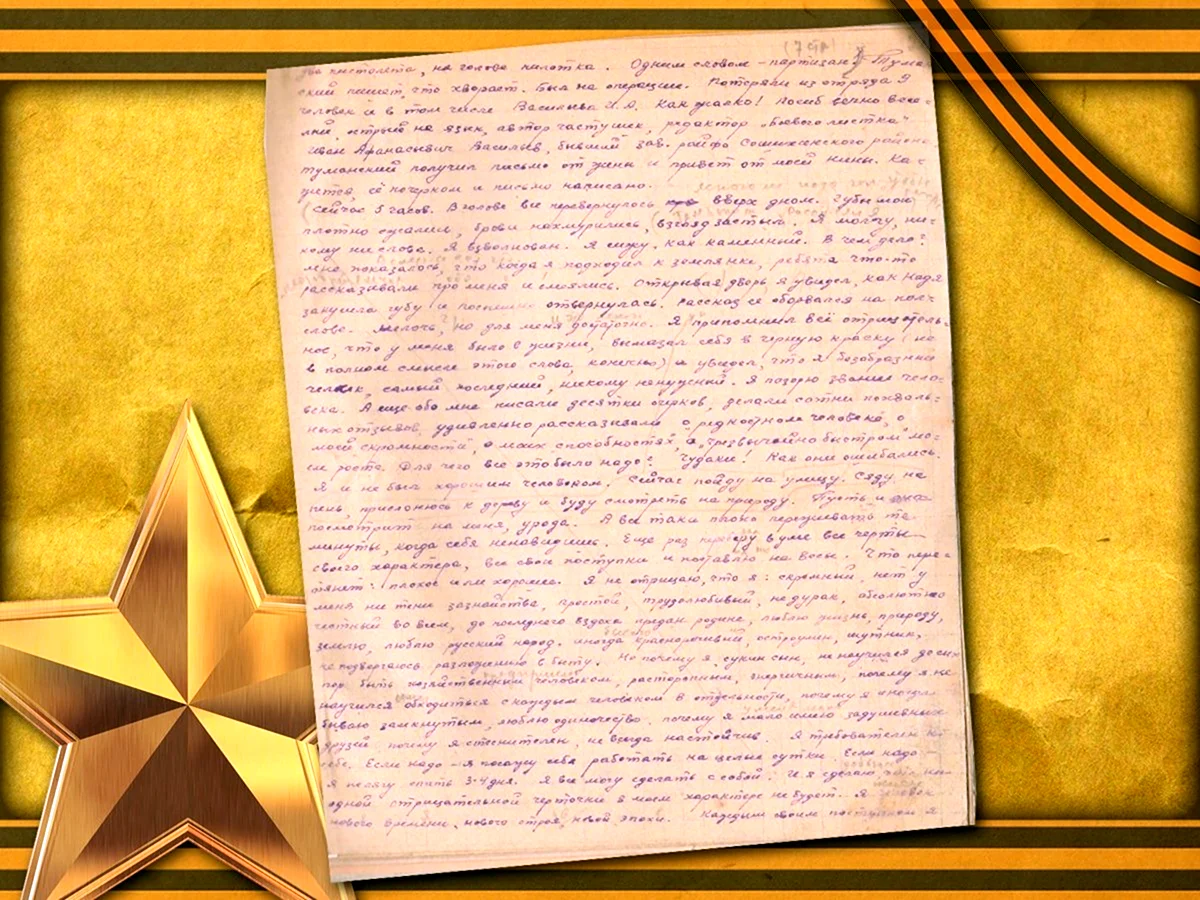 (7 стр)
два пистолета, на голове пилотка. Одним словом – партизан. Тума-
ский пишет, что хворает. Был на операции. Потеряли из отряда 9
человек и в том числе Васильева И.А. Как жалко! Погиб вечно весе-
лый, острый на язык, автор частушек, редактор „Боевого листка"
Иван Афанасьевич Васильев, бывший зав. райфо Сошихинского района.
Туманский получил письмо от жены и привет от моей Нины. Ка-
жется её почерком и письмо написано.
Сейчас 5 часов. В голове все перевернулось вверх дном. Губы мои
плотно сжались, брови нахмурились, взгляд застыл. Я молчу, ни-
кому ни слова. Я взволнован. Я сижу, как каменный. В чем дело?
Мне показалось, что когда я подходил к землянке, ребята что-то
рассказывали про меня и смеялись. Открывая дверь я увидел, как Надя
закусила губу и поспешно отвернулась. Рассказ оборвался на полу-
слове. Мелочь, но для меня достаточно. Я припомнил всё отрицатель-
ное, что у меня было в жизни, вымазал себя в черную краску (не
в полном смысле этого слова, конечно) и увидел, что я безобразный
человек, самый последний, никому ненужный. Я позорю звание чело-
века. А еще обо мне писали десятки очерков, делали сотни похваль-
ных отзывов, удивленно рассказывали о „редкостном человеке", о
„моей скромности", о моих способностях, о „чрезвычайно быстром" мо-
ем росте. Для чего всё это было надо? Чудаки! Как они ошибались.
Я и не был хорошим человеком. Сейчас пойду на улицу. Сяду на
пень, прислонюсь к дереву и буду смотреть на природу. Пусть и она
посмотрит на меня, урода. А все таки плохо переживать те
минуты, когда себя ненавидишь. Еще раз проверю в уме все черты
своего характера, все свои поступки и поставлю на весы. Что пере-
тянет: плохое или хорошее. Я не отрицаю, что я: скромный, нет у
меня ни тени зазнайства, простой, трудолюбивый, не дурак, абсолютно
честный во всем, до последнего вздоха предан родине, люблю жизнь, природу,
землю, люблю русский народ, иногда красноречивый, остроумен, шутник,
не подвергаюсь разложению в быту. Но почему я, сукин сын, не научился до сих
пор быть хозяйственным человеком, расторопным, энергичным, почему я не
научился обходиться с каждым человеком в отдельности, почему я иногда
бываю замкнутым, люблю одиночество, почему я мало имею задушевных
друзей, почему я стеснителен, не всегда настойчив. Я требователен к
себе. Если надо – я посажу себя работать на целые сутки. Если надо –
я лягу спать 3-4 дня. Я все могу сделать с собой. И я сделаю ни
одной отрицательной черточки в моем характере не будет. Я человек
нового времени, нового строя, новой эпохи. Каждым своим поступком я